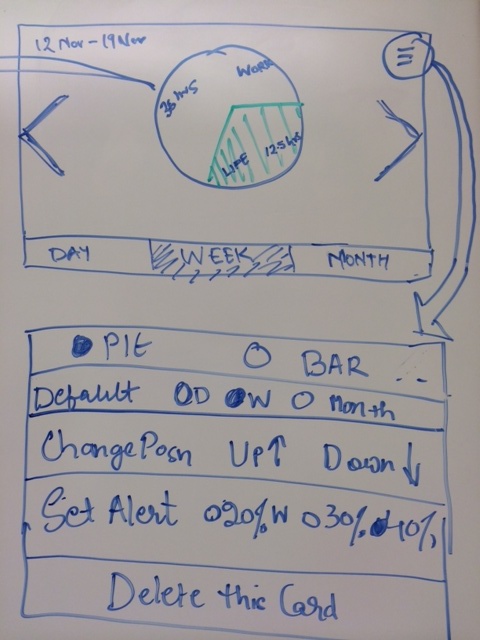 12 Nov - 19 Nov
WORK
38 hrs
LIFE
12.5 hrs
DAY WEEK MONTH
PIE BAR
Default D W Month
Change Posn Up↑ Down↓
Set Alert 20% W 30% 40%
Delete this Card